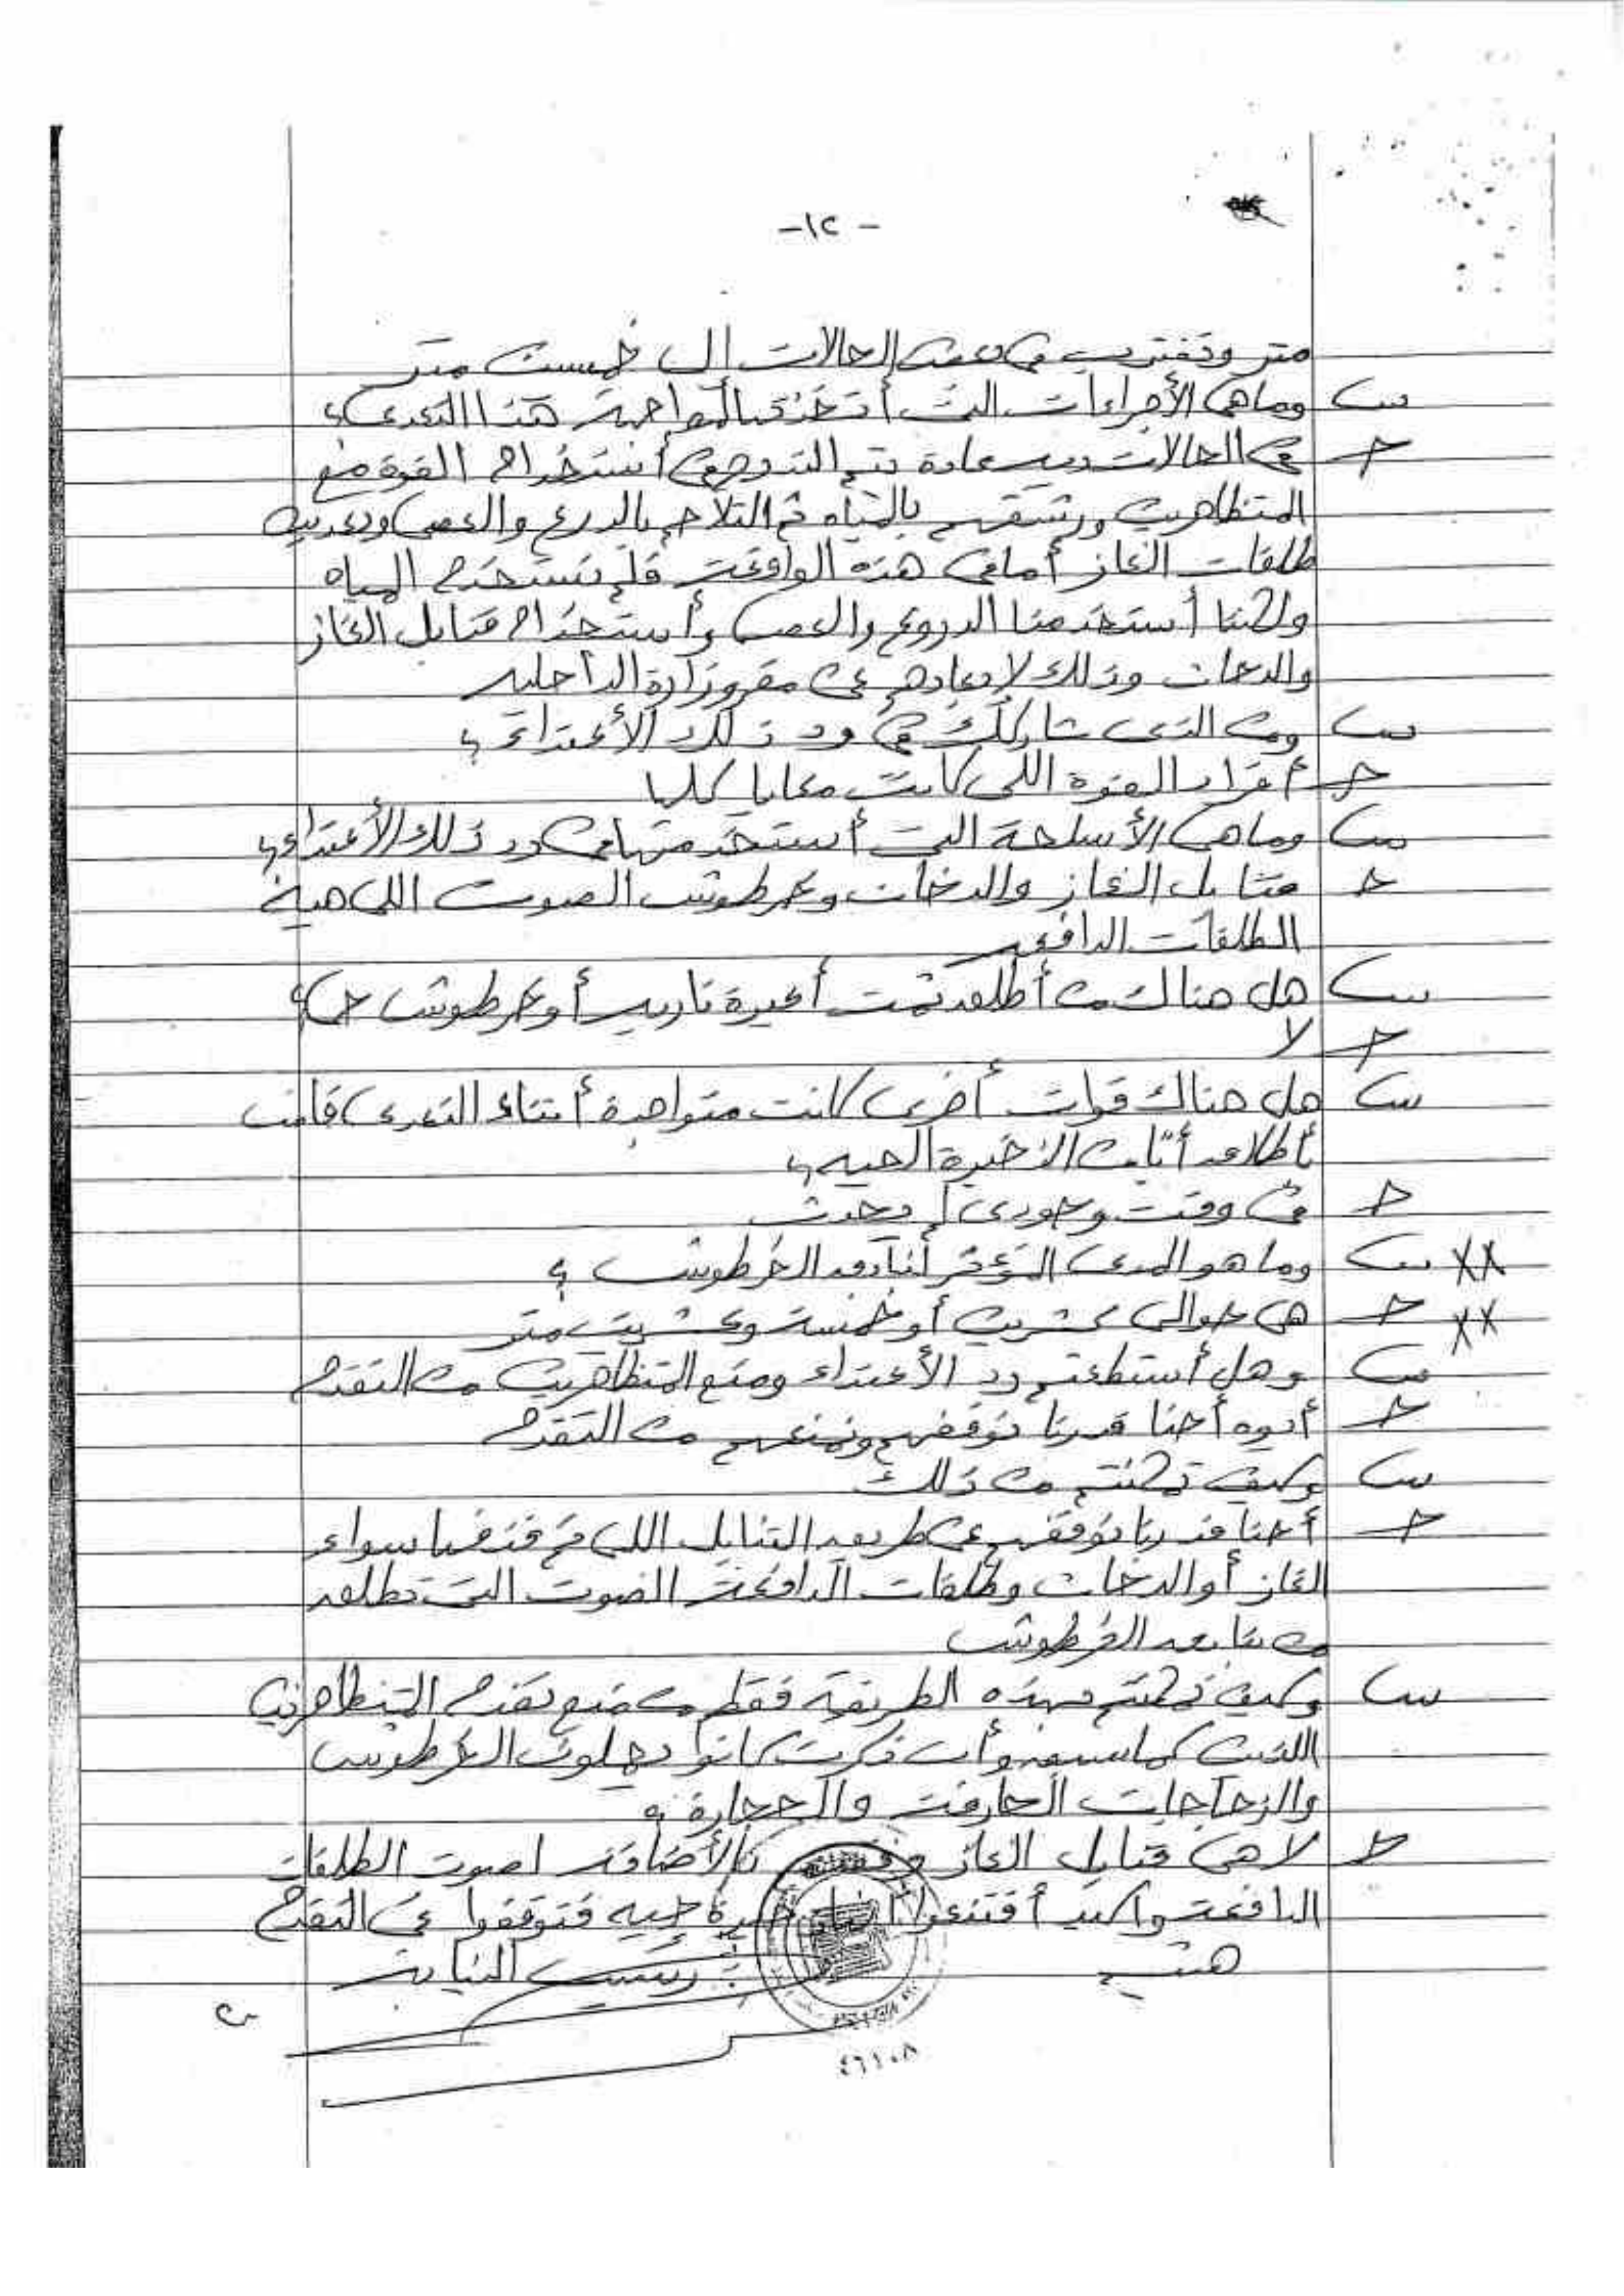 -١٢-
متر وتقترب في بعض الحالات إلى خمسين متر
س وما هي الأجراءات التي أتخذتها لمواجهة هذا التعدي؟
ج في الحالات ديه عادة يتم التدرج في أستخدام القوة مع
المتظاهرين ورشقهم بالمياه ثم التلاحم بالدرع والعصي وبعديه
طلقات الغاز أما في هذه الواقعة فلم نستخدم المياه
ولكننا أستخدمنا الدروع والعصي وأستخدام قنابل الغاز
والدخان وذلك لابعادهم عن مقر وزارة الداخليه
س ومن الذي شاركك في رد ذلك الأعتداء؟
ج أفراد القوة اللي كانت معايا كلها
س وما هي الأسلحة التي أستخدمتها في رد ذلك الأعتداء؟
ج قنابل الغاز والدخان وخرطوش الصوت اللي هيه
الطلقات الدافعه
س هل هناك من أطلق ثمت أعيرة ناريه أو خرطوش حي؟
ج لا
س هل هناك قوات أخرى كانت متواجدة أثناء التعدي قامت
بأطلاق أياً من الأعيرة الحيه؟
ج في وقت وجودي لم يحدث
س وما هو المدى المؤثر لبنادق الخرطوش؟ XX
ج هي حوالي عشرين أو خمسة وعشرين متر XX
س وهل أستطعتم رد الأعتداء ومنع المتظاهرين من التقدم
ج أيوه أحنا قدرنا نوقفهم ونمنعهم من التقدم
س وكيف تمكنتم من ذلك
ج أحنا قدرنا نوقفهم عن طريق القنابل اللي تم قذفها سواء
الغاز أو الدخان وطلقات الدافعة الصوت التي تطلق
من بنادق الخرطوش
س وكيف تمكنتم بهذه الطريقة فقط من منع تقدم المتظاهرين
اللذين كما سبق وأن ذكرت كانوا يحملون الخرطوش
والزجاجات الحارقة والحجارة؟
ج لا هي قنابل الغاز بالأضافة لصوت الطلقات
الدافعة وأكيد أقتنعوا حيه فتوقفوا عن التقدم
رئيس النيابة
٤٦١٠٨